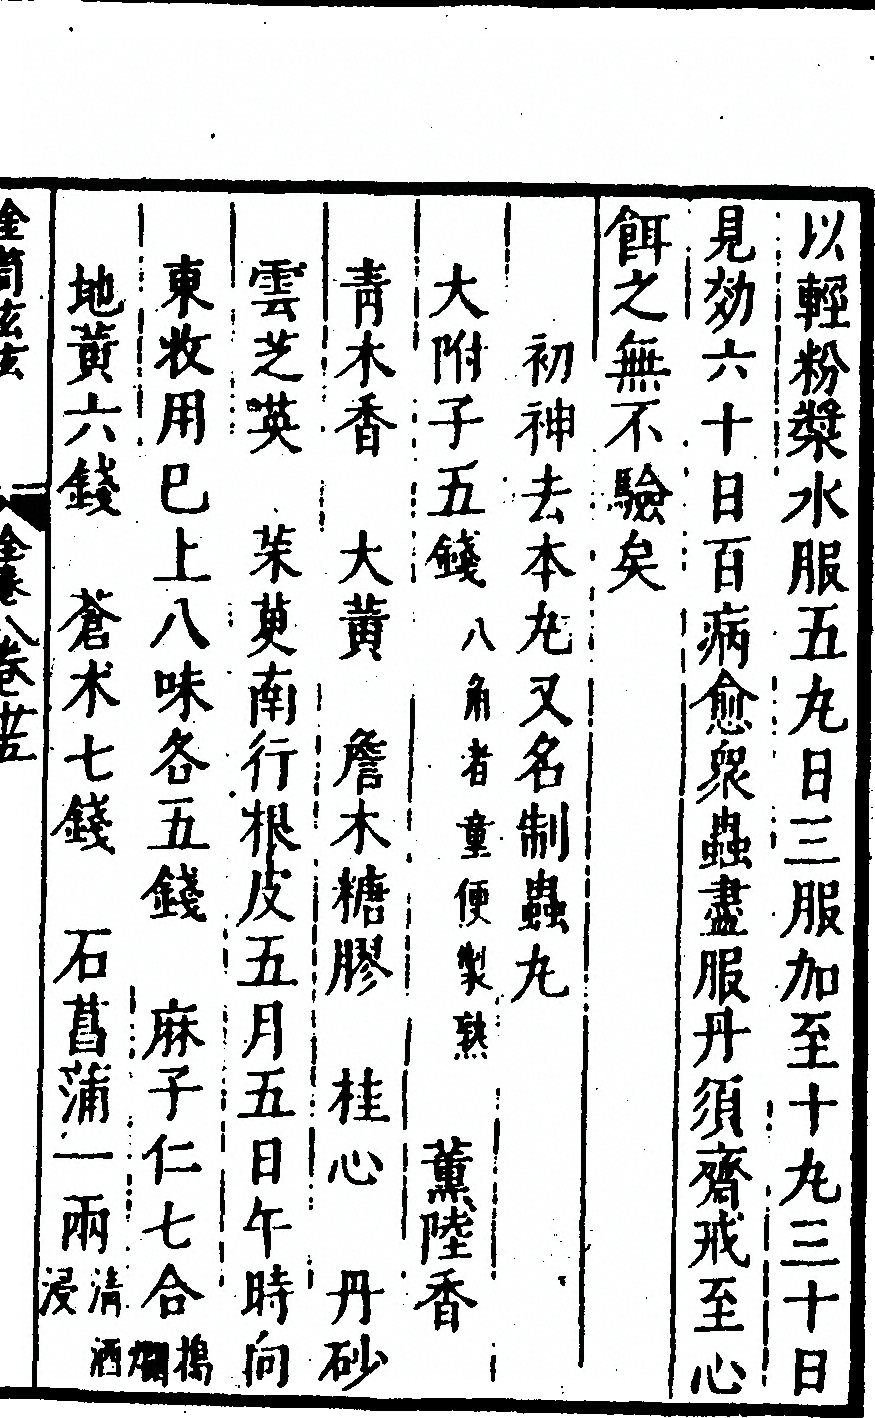 以輕粉漿水服五丸日三服加至十丸三十日
見効六十日百病愈衆蟲盡服丹須齋戒至心
餌之無不驗矣
初神去本丸又名制蟲丸
大附子五錢 八角者童便製熟 薰陸香
青木香 大黃 詹木糖膠 桂心 丹砂
雲芝英 茱萸南行根皮五月五日午時向
東收用巳上八味各五錢 麻子仁七合搗爛
地黃六錢 蒼朮七錢 石菖蒲一兩清酒浸